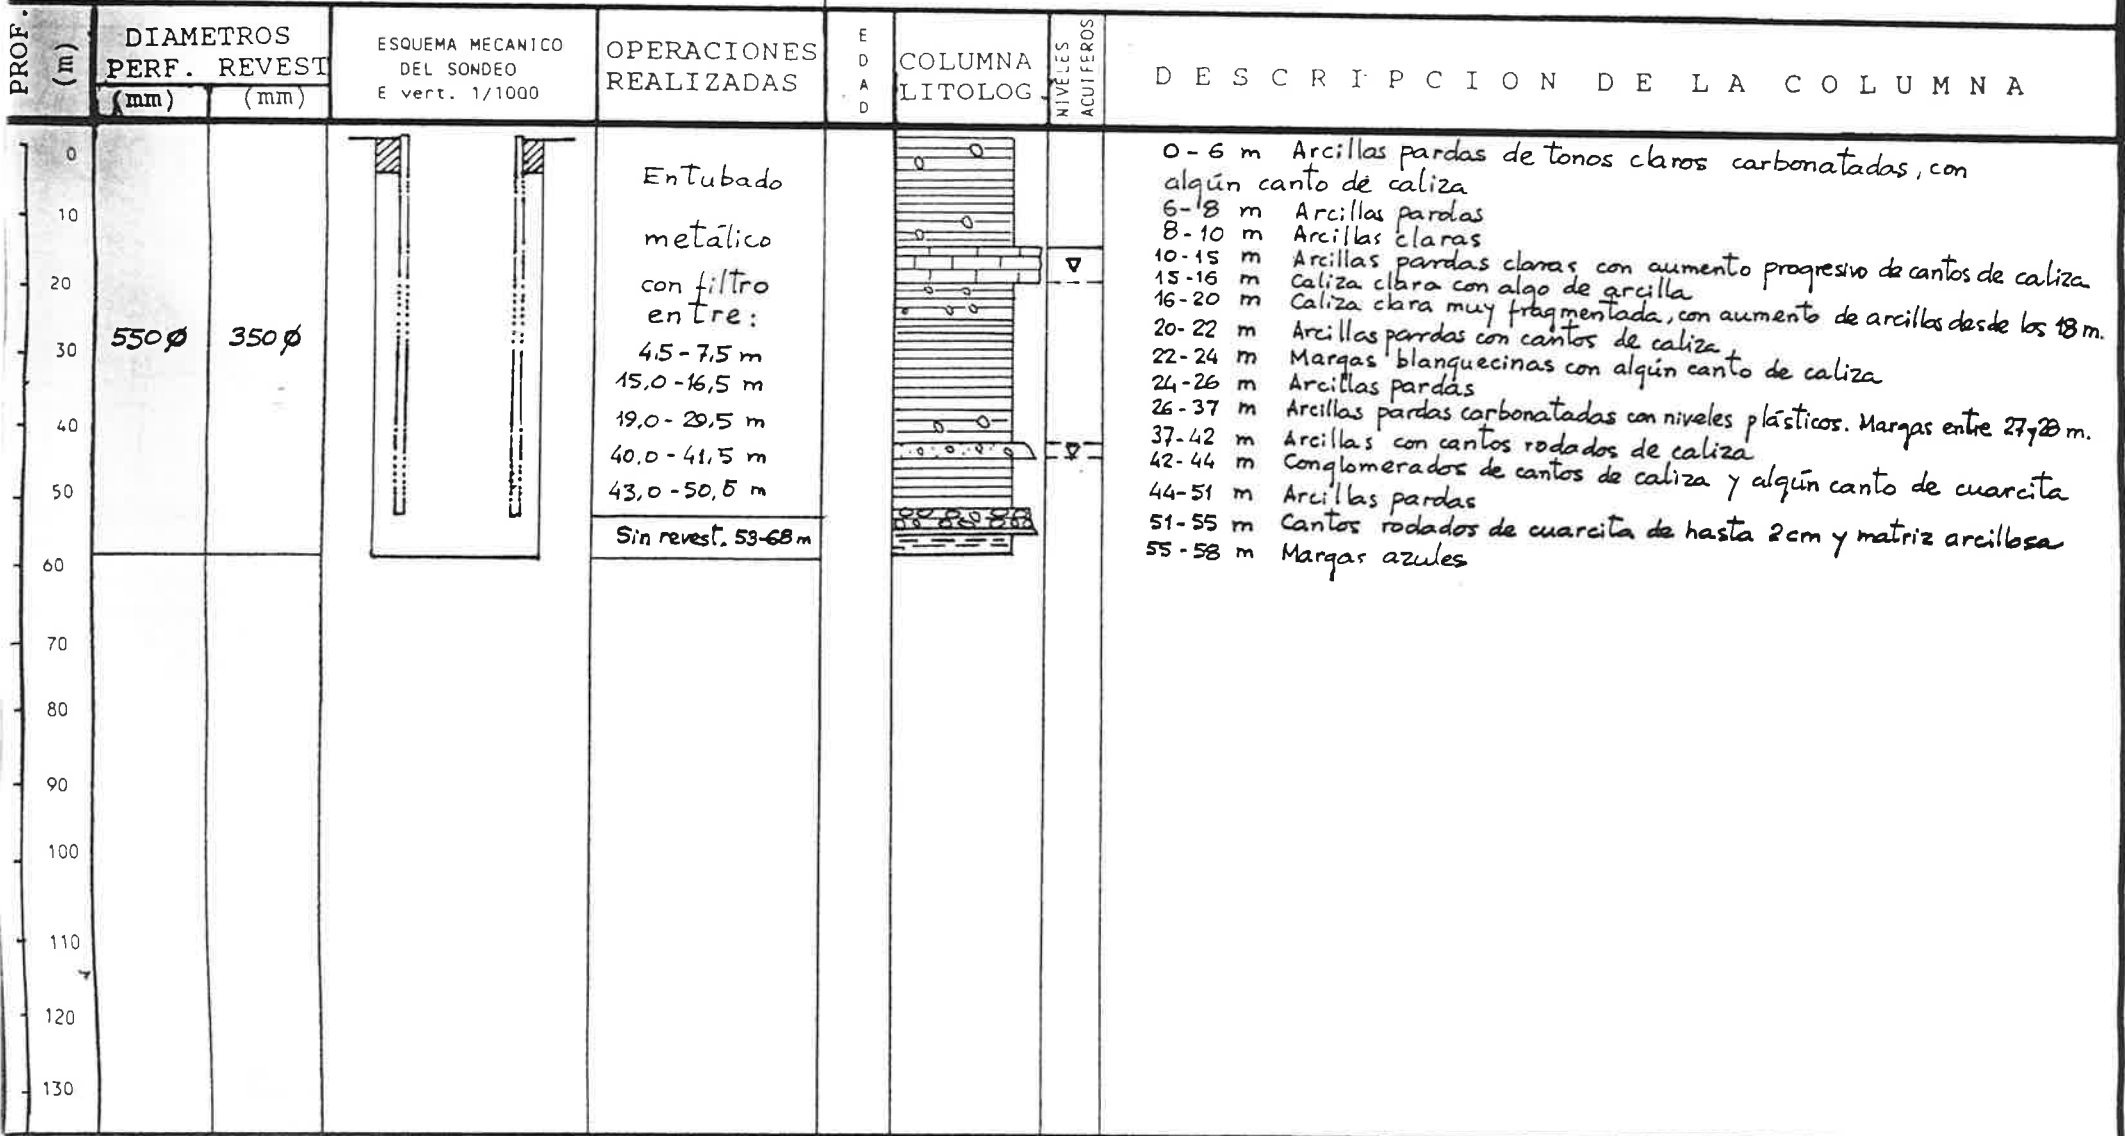 PROF. (m)
DIAMETROS
PERF. REVEST
(mm) (mm)
ESQUEMA MECANICO
DEL SONDEO
E vert. 1/1000
OPERACIONES
REALIZADAS
EDAD
COLUMNA
LITOLOG.
NIVELES
ACUIFEROS
DESCRIPCION DE LA COLUMNA
0
10
20
30
40
50
60
70
80
90
100
110
120
130
550 ø
350 ø
Entubado
metálico
con filtro
entre:
4,5 - 7,5 m
15,0 - 16,5 m
19,0 - 29,5 m
40,0 - 41,5 m
43,0 - 50,5 m
Sin revest. 53-68 m
0 - 6 m Arcillas pardas de tonos claros carbonatadas, con
algún canto de caliza
6 - 8 m Arcillas pardas
8 - 10 m Arcillas claras
10 - 15 m Arcillas pardas claras con aumento progresivo de cantos de caliza
15 - 16 m Caliza clara con algo de arcilla
16 - 20 m Caliza clara muy fragmentada, con aumento de arcillas desde los 18 m.
20 - 22 m Arcillas pardas con cantos de caliza
22 - 24 m Margas blanquecinas con algún canto de caliza
24 - 26 m Arcillas pardas
26 - 37 m Arcillas pardas carbonatadas con niveles plásticos. Margas entre 27 y 28 m.
37 - 42 m Arcillas con cantos rodados de caliza
42 - 44 m Conglomerados de cantos de caliza y algún canto de cuarcita
44 - 51 m Arcillas pardas
51 - 55 m Cantos rodados de cuarcita de hasta 2 cm y matriz arcillosa
55 - 58 m Margas azules